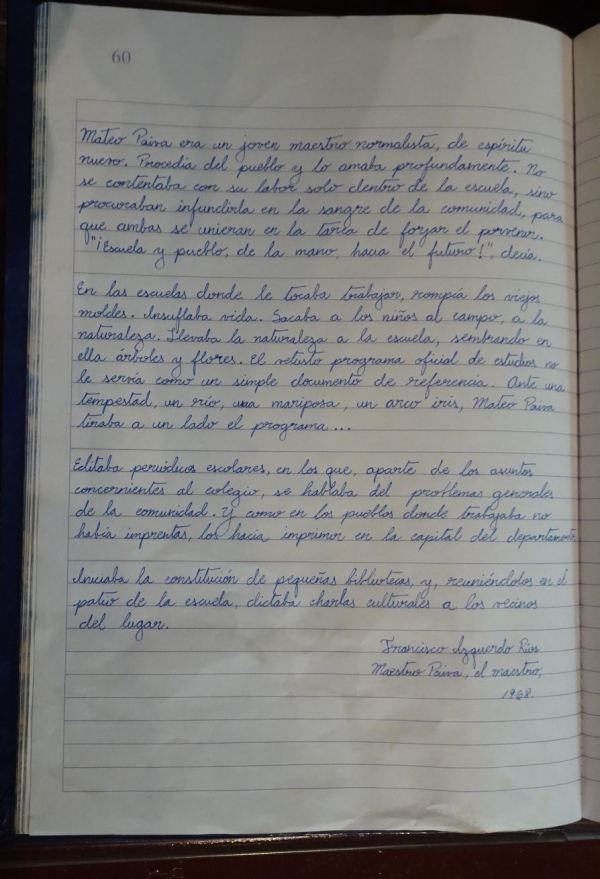 60
Mateo Paiva era un joven maestro normalista, de espíritu
nuevo. Procedía del pueblo y lo amaba profundamente. No
se contentaba con su labor solo dentro de la escuela, sino
procuraban infundirla en la sangre de la comunidad, para
que ambas se unieran en la tarea de forjar el porvenir.
"¡Escuela y pueblo, de la mano, hacia el futuro!", decía.
En las escuelas donde le tocaba trabajar, rompía los viejos
moldes. Insuflaba vida. Sacaba a los niños al campo, a la
naturaleza. Llevaba la naturaleza a la escuela, sembrando en
ella árboles y flores. El vetusto programa oficial de estudios no
le servía como un simple documento de referencia. Ante una
tempestad, un río, una mariposa, un arco iris, Mateo Paiva
tiraba a un lado el programa...
Editaba periódicos escolares, en los que, aparte de los asuntos
concernientes al colegio, se hablaba del problemas generales
de la comunidad. Y como en los pueblos donde trabajaba no
había imprentas, los hacia imprimir en la capital del departamento.
Iniciaba la constitución de pequeñas bibliotecas, y, reuniéndolos en el
patio de la escuela, dictaba charlas culturales a los vecinos
del lugar.
Francisco Izquerdo Ríos
Maestro Paiva, el maestro,
1968.